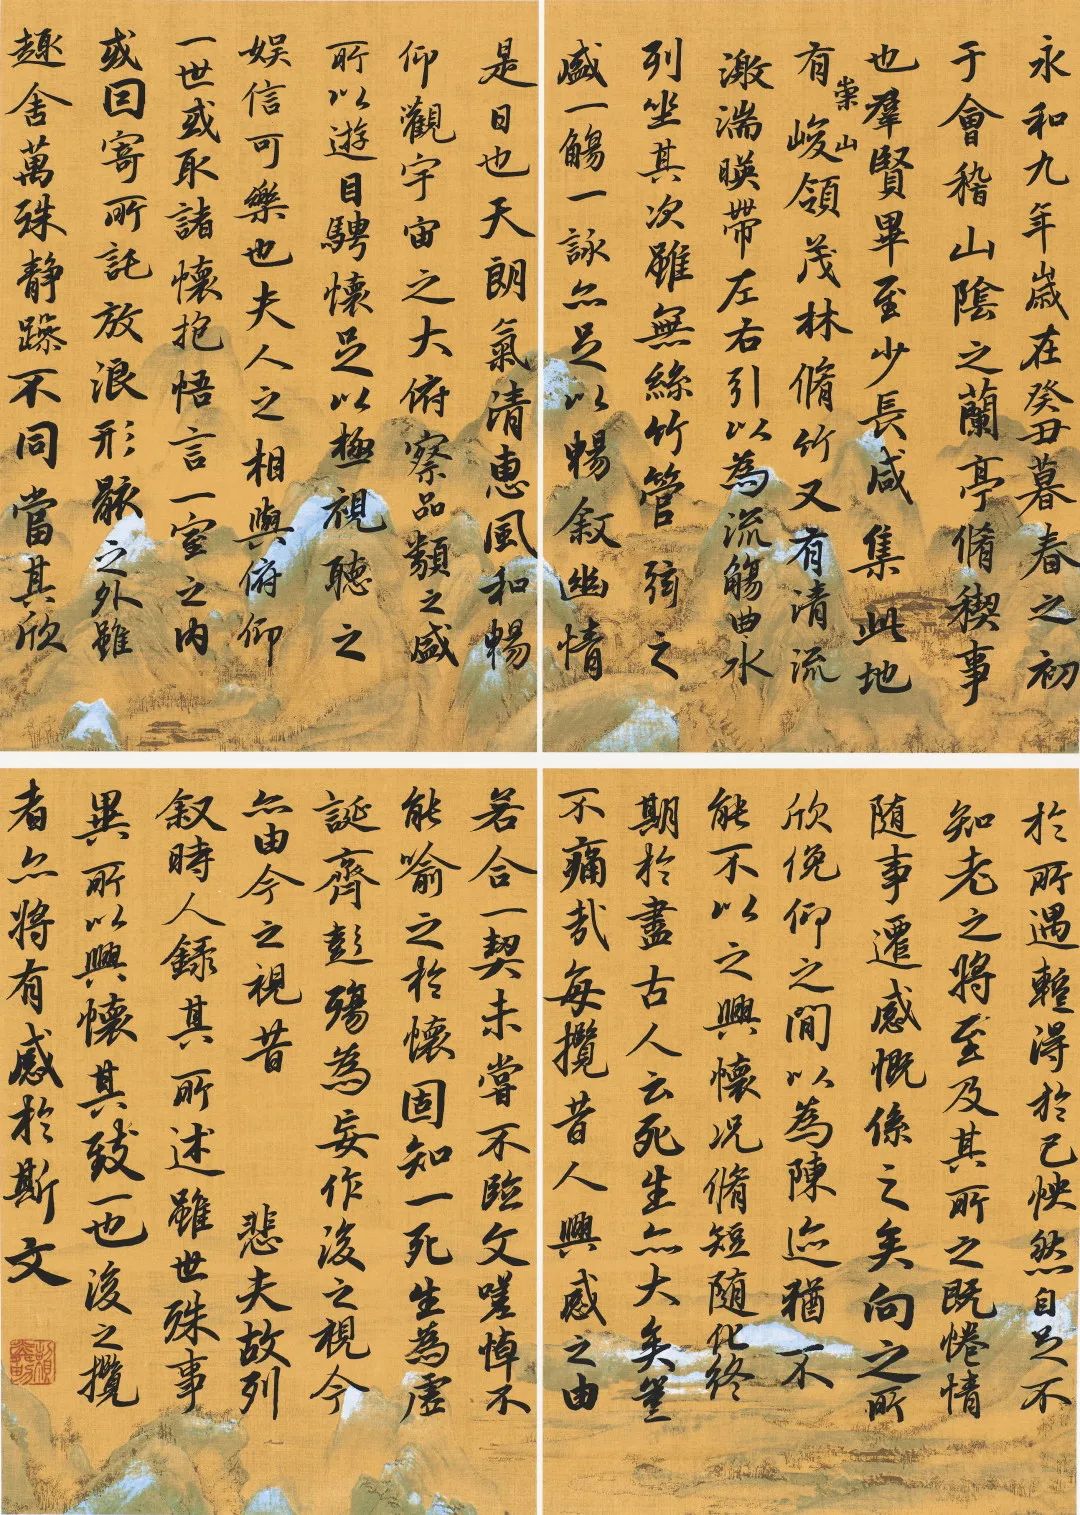 永和九年歲在癸丑暮春之初
于會稽山陰之蘭亭脩稧事
也羣賢畢至少長咸集此地
有崇山峻領茂林脩竹又有清流
激湍暎帶左右引以為流觴曲水
列坐其次雖無絲竹管弦之
盛一觴一詠亦足以暢敘幽情
是日也天朗氣清惠風和暢
仰觀宇宙之大俯察品類之盛
所以遊目騁懷足以極視聽之
娛信可樂也夫人之相與俯仰
一世或取諸懷抱悟言一室之內
或因寄所託放浪形骸之外雖
趣舍萬殊靜躁不同當其欣
於所遇暫得於己怏然自足不
知老之將至及其所之既惓情
随事遷感慨係之矣向之所
欣俛仰之間以為陳迹猶不
能不以之興懷況脩短随化終
期於盡古人云死生亦大矣豈
不痛哉每攬昔人興感之由
若合一契未嘗不臨文嗟悼不
能喻之於懷固知一死生為虛
誕齊彭殤為妄作後之視今
亦由今之視昔 悲夫故列
叙時人録其所述雖世殊事
異所以興懷其致一也後之攬
者亦將有感於斯文